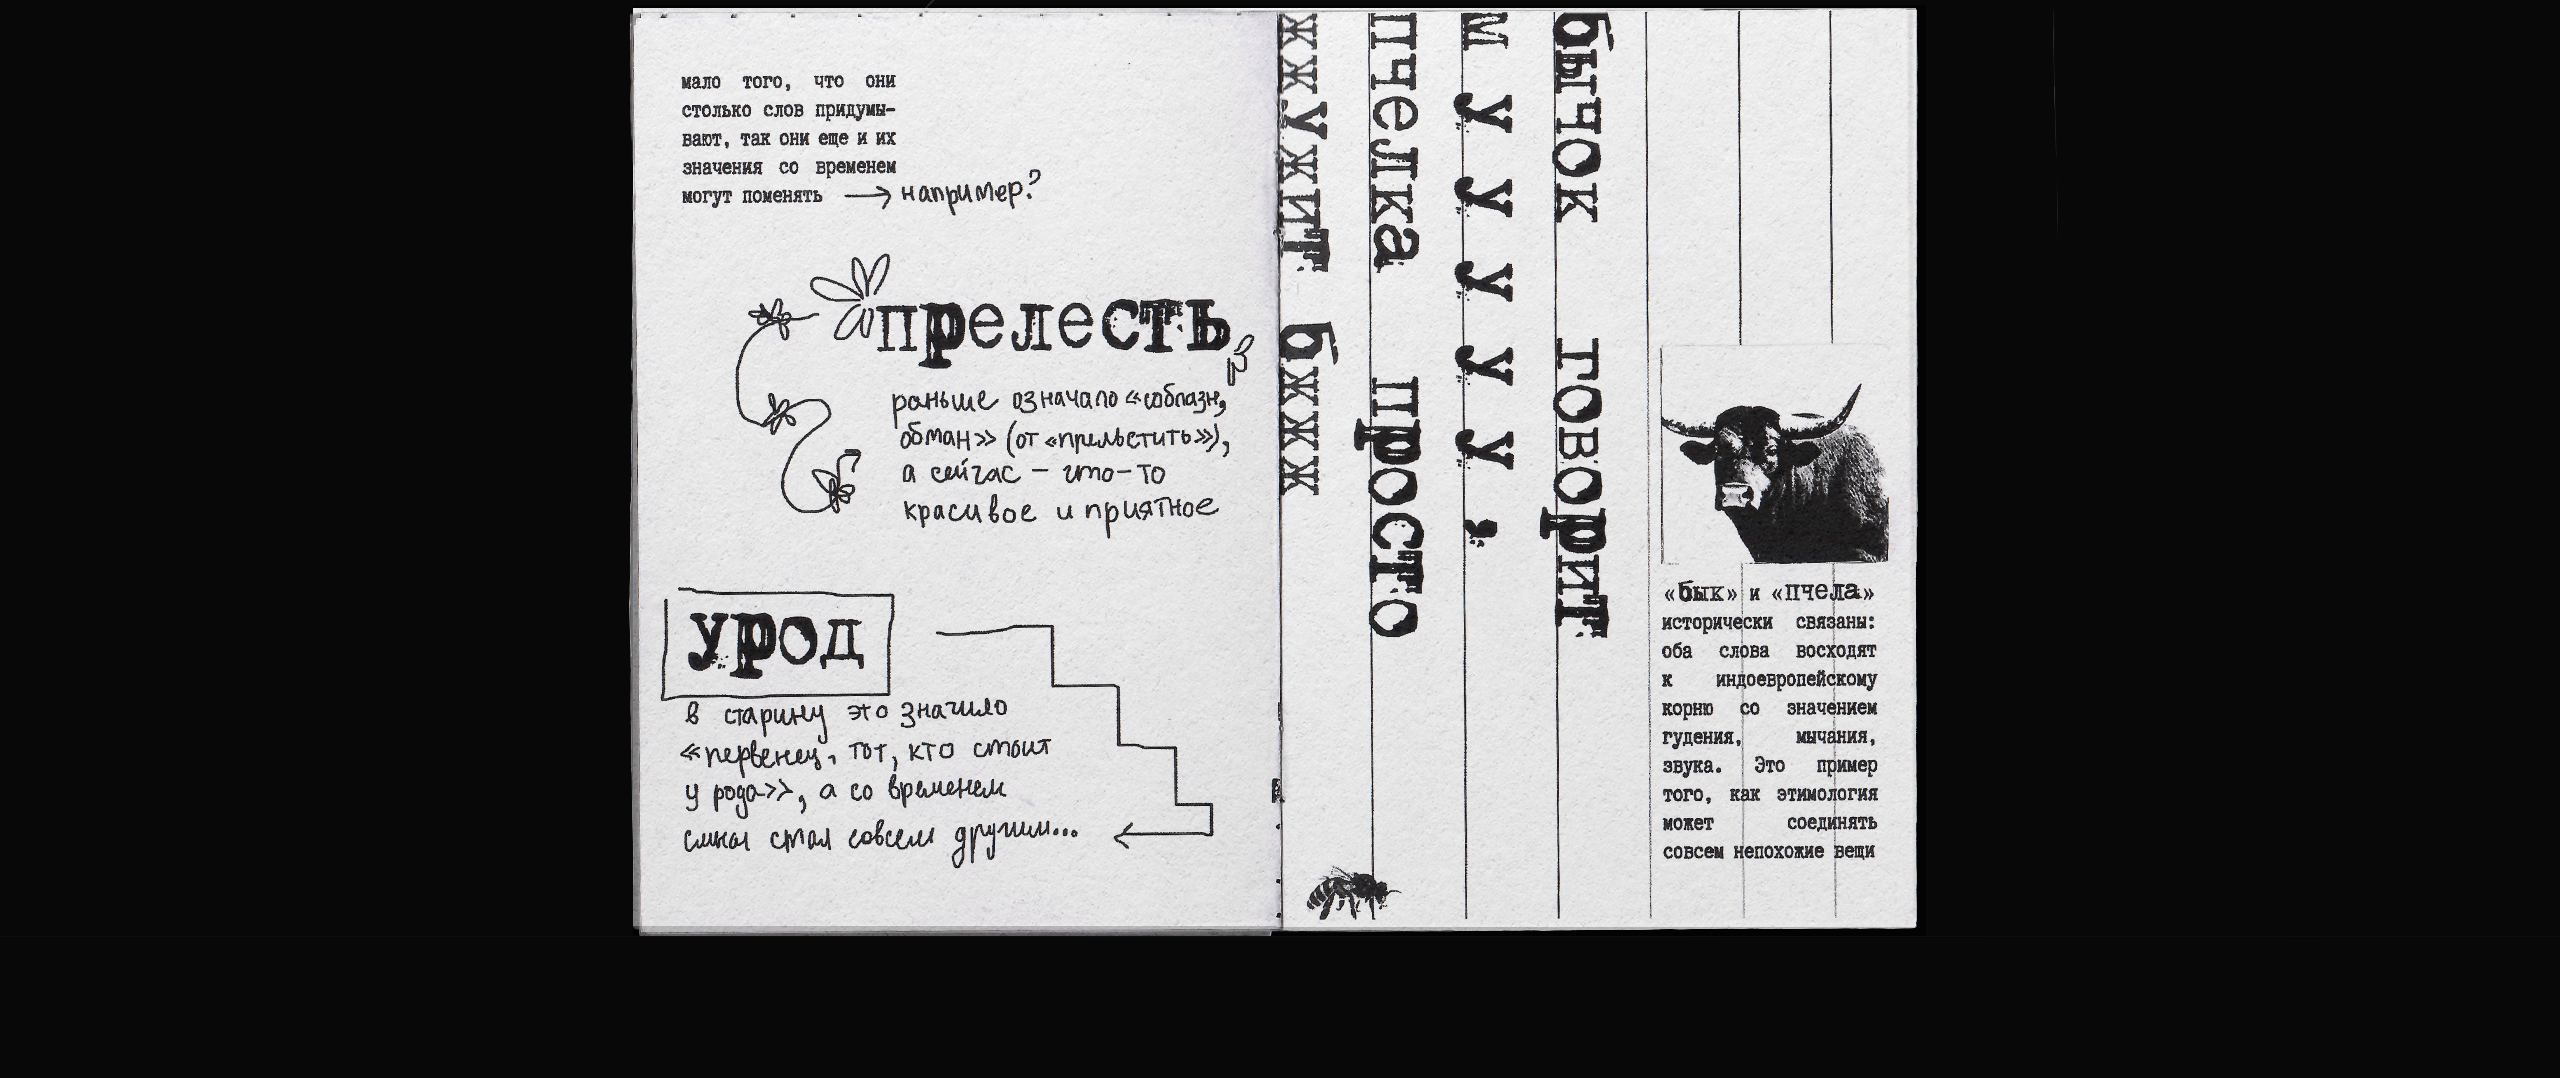 мало того, что они
столько слов придумы-
вают, так они еще и их
значения со временем
могут поменять → например?
прелесть
раньше означало «соблазн,
обман» (от «прельстить»),
а сейчас – что-то
красивое и приятное
урод
в старину это значило
«первенец, тот, кто стоит
у рода», а со временем
смысл стал совсем другим...
бычок говорит
м у у у у у ,
пчелка просто
жжужжит бжжж
«бык» и «пчела»
исторически связаны:
оба слова восходят
к индоевропейскому
корню со значением
гудения, мычания,
звука. Это пример
того, как этимология
может соединять
совсем непохожие вещи